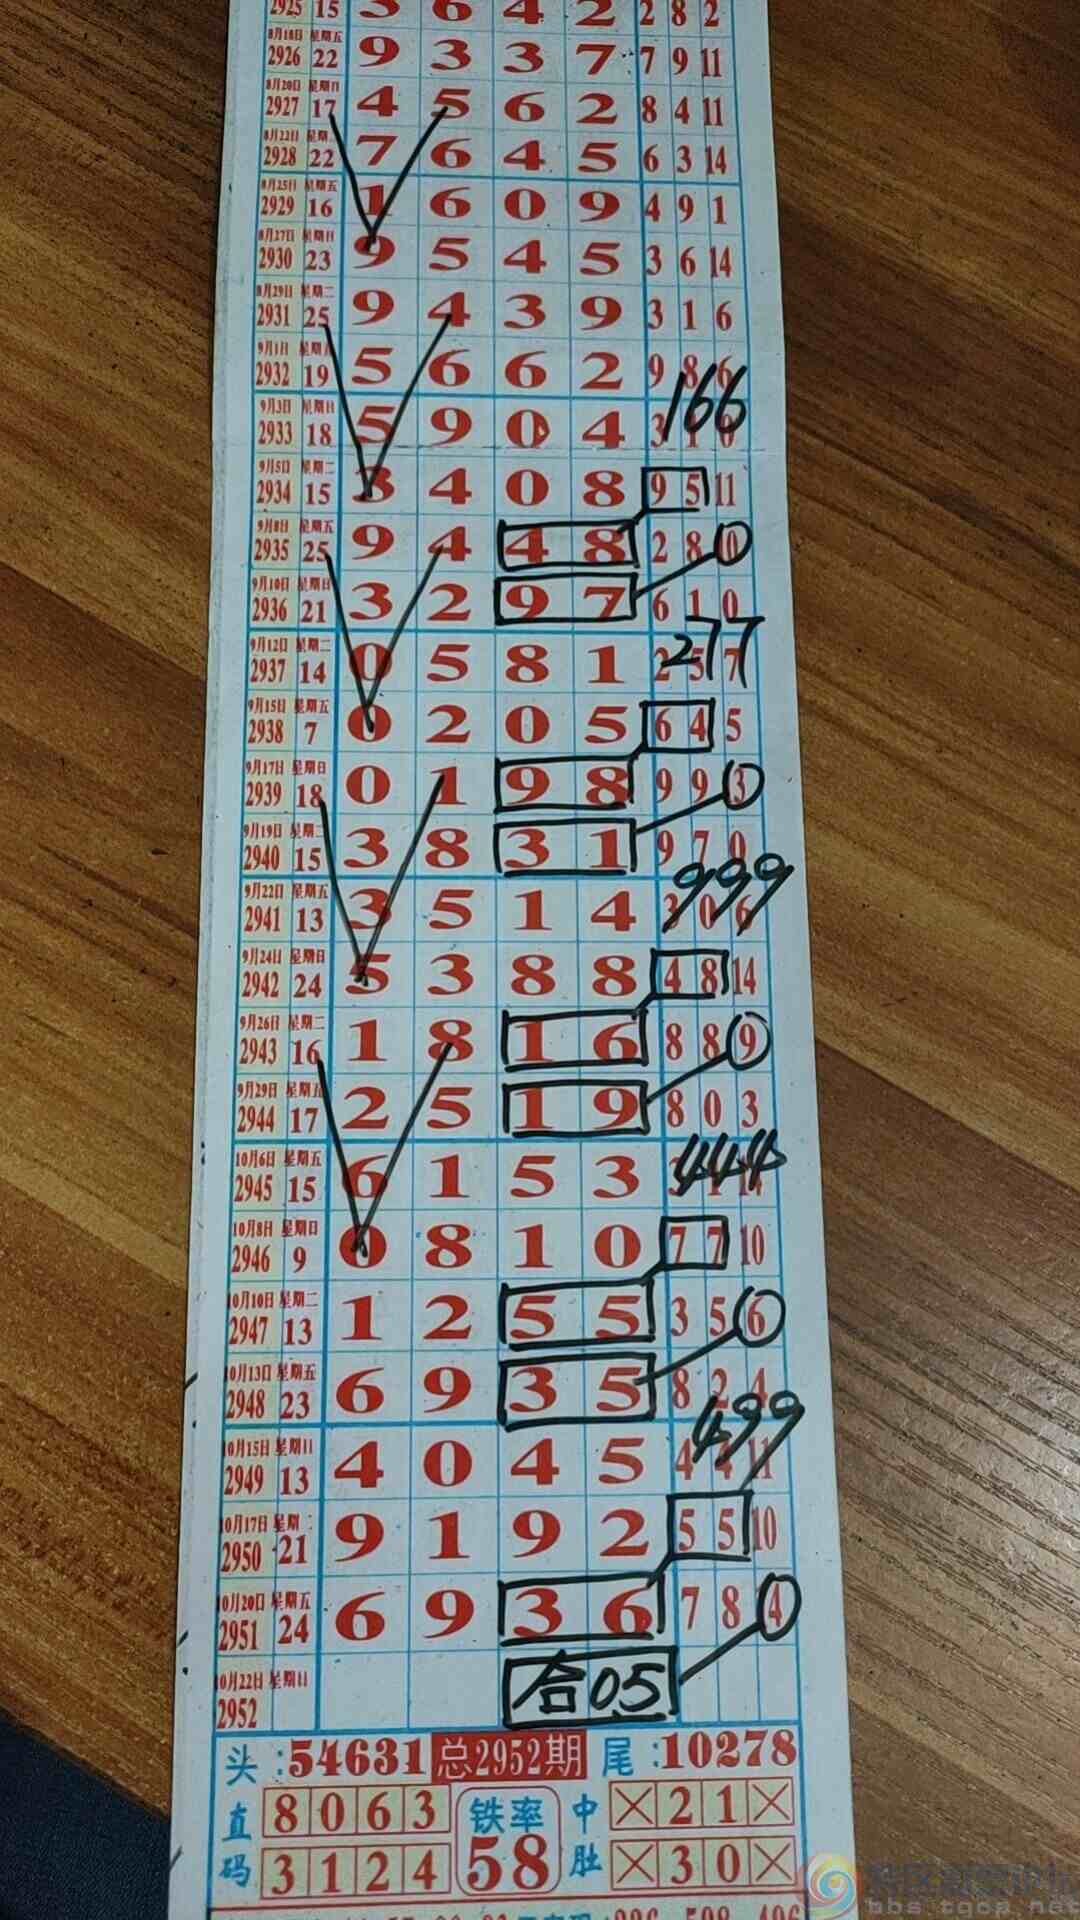 2925 15 3 6 4 2 2 8 2
8月18日 星期五
2926 22 9 3 3 7 7 9 11
8月20日 星期日
2927 17 4 5 6 2 8 4 11
8月22日 星期二
2928 22 7 6 4 5 6 3 14
8月25日 星期五
2929 16 1 6 0 9 4 9 1
8月27日 星期日
2930 23 9 5 4 5 3 6 14
8月29日 星期二
2931 25 9 4 3 9 3 1 6
9月1日 星期五
2932 19 5 6 6 2 9 8 6
166
9月3日 星期日
2933 18 5 9 0 4 3 1 0
9月5日 星期二
2934 15 3 4 0 8 9 5 11
9月8日 星期五
2935 25 9 4 4 8 2 8 10
9月10日 星期日
2936 21 3 2 9 7 6 1 0
277
9月12日 星期二
2937 14 0 5 8 1 2 5 7
9月15日 星期五
2938 7 0 2 0 5 6 4 5
9月17日 星期日
2939 18 0 1 9 8 9 9 3
9月19日 星期二
2940 15 3 8 3 1 9 7 0
999
9月22日 星期五
2941 13 3 5 1 4 3 0 6
9月24日 星期日
2942 24 5 3 8 8 4 8 14
9月26日 星期二
2943 16 1 8 1 6 8 8 9
9月29日 星期五
2944 17 2 5 1 9 8 0 3
444
10月6日 星期五
2945 15 6 1 5 3 3 1 14
10月8日 星期日
2946 9 0 8 1 0 7 7 10
10月10日 星期二
2947 13 1 2 5 5 3 5 6
10月13日 星期五
2948 23 6 9 3 5 8 2 4
499
10月15日 星期日
2949 13 4 0 4 5 4 4 11
10月17日 星期二
2950 21 9 1 9 2 5 5 10
10月20日 星期五
2951 24 6 9 3 6 7 8 4
10月22日 星期日
2952 合05
头:54631 总2952期 尾:10278
直码 8063 铁率 中肚 ×21×
3124 58 ×30×
bbs.tgcs.net